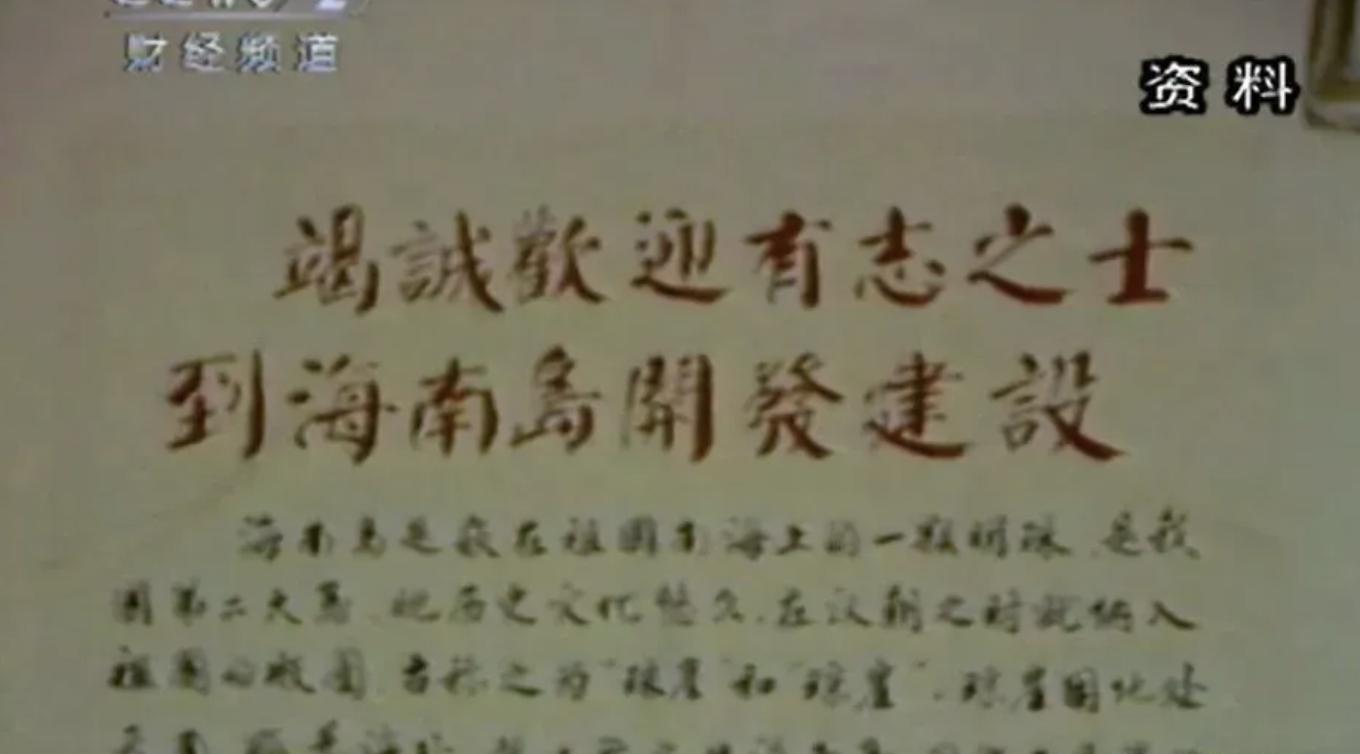 财经频道
资料
竭誠歡迎有志之士
到海南島開發建設
海南島是嵌在祖國南海上的一颗明珠,是我
國第二大島,她历史文化悠久,在汉朝之时就納入
祖國的版圖,古称之为"珠崖"和"琼崖"。琼崖因地处